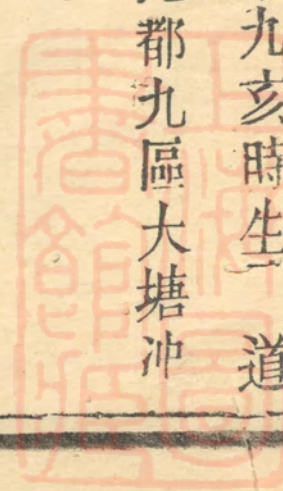 九亥時生　道
都九區大塘冲